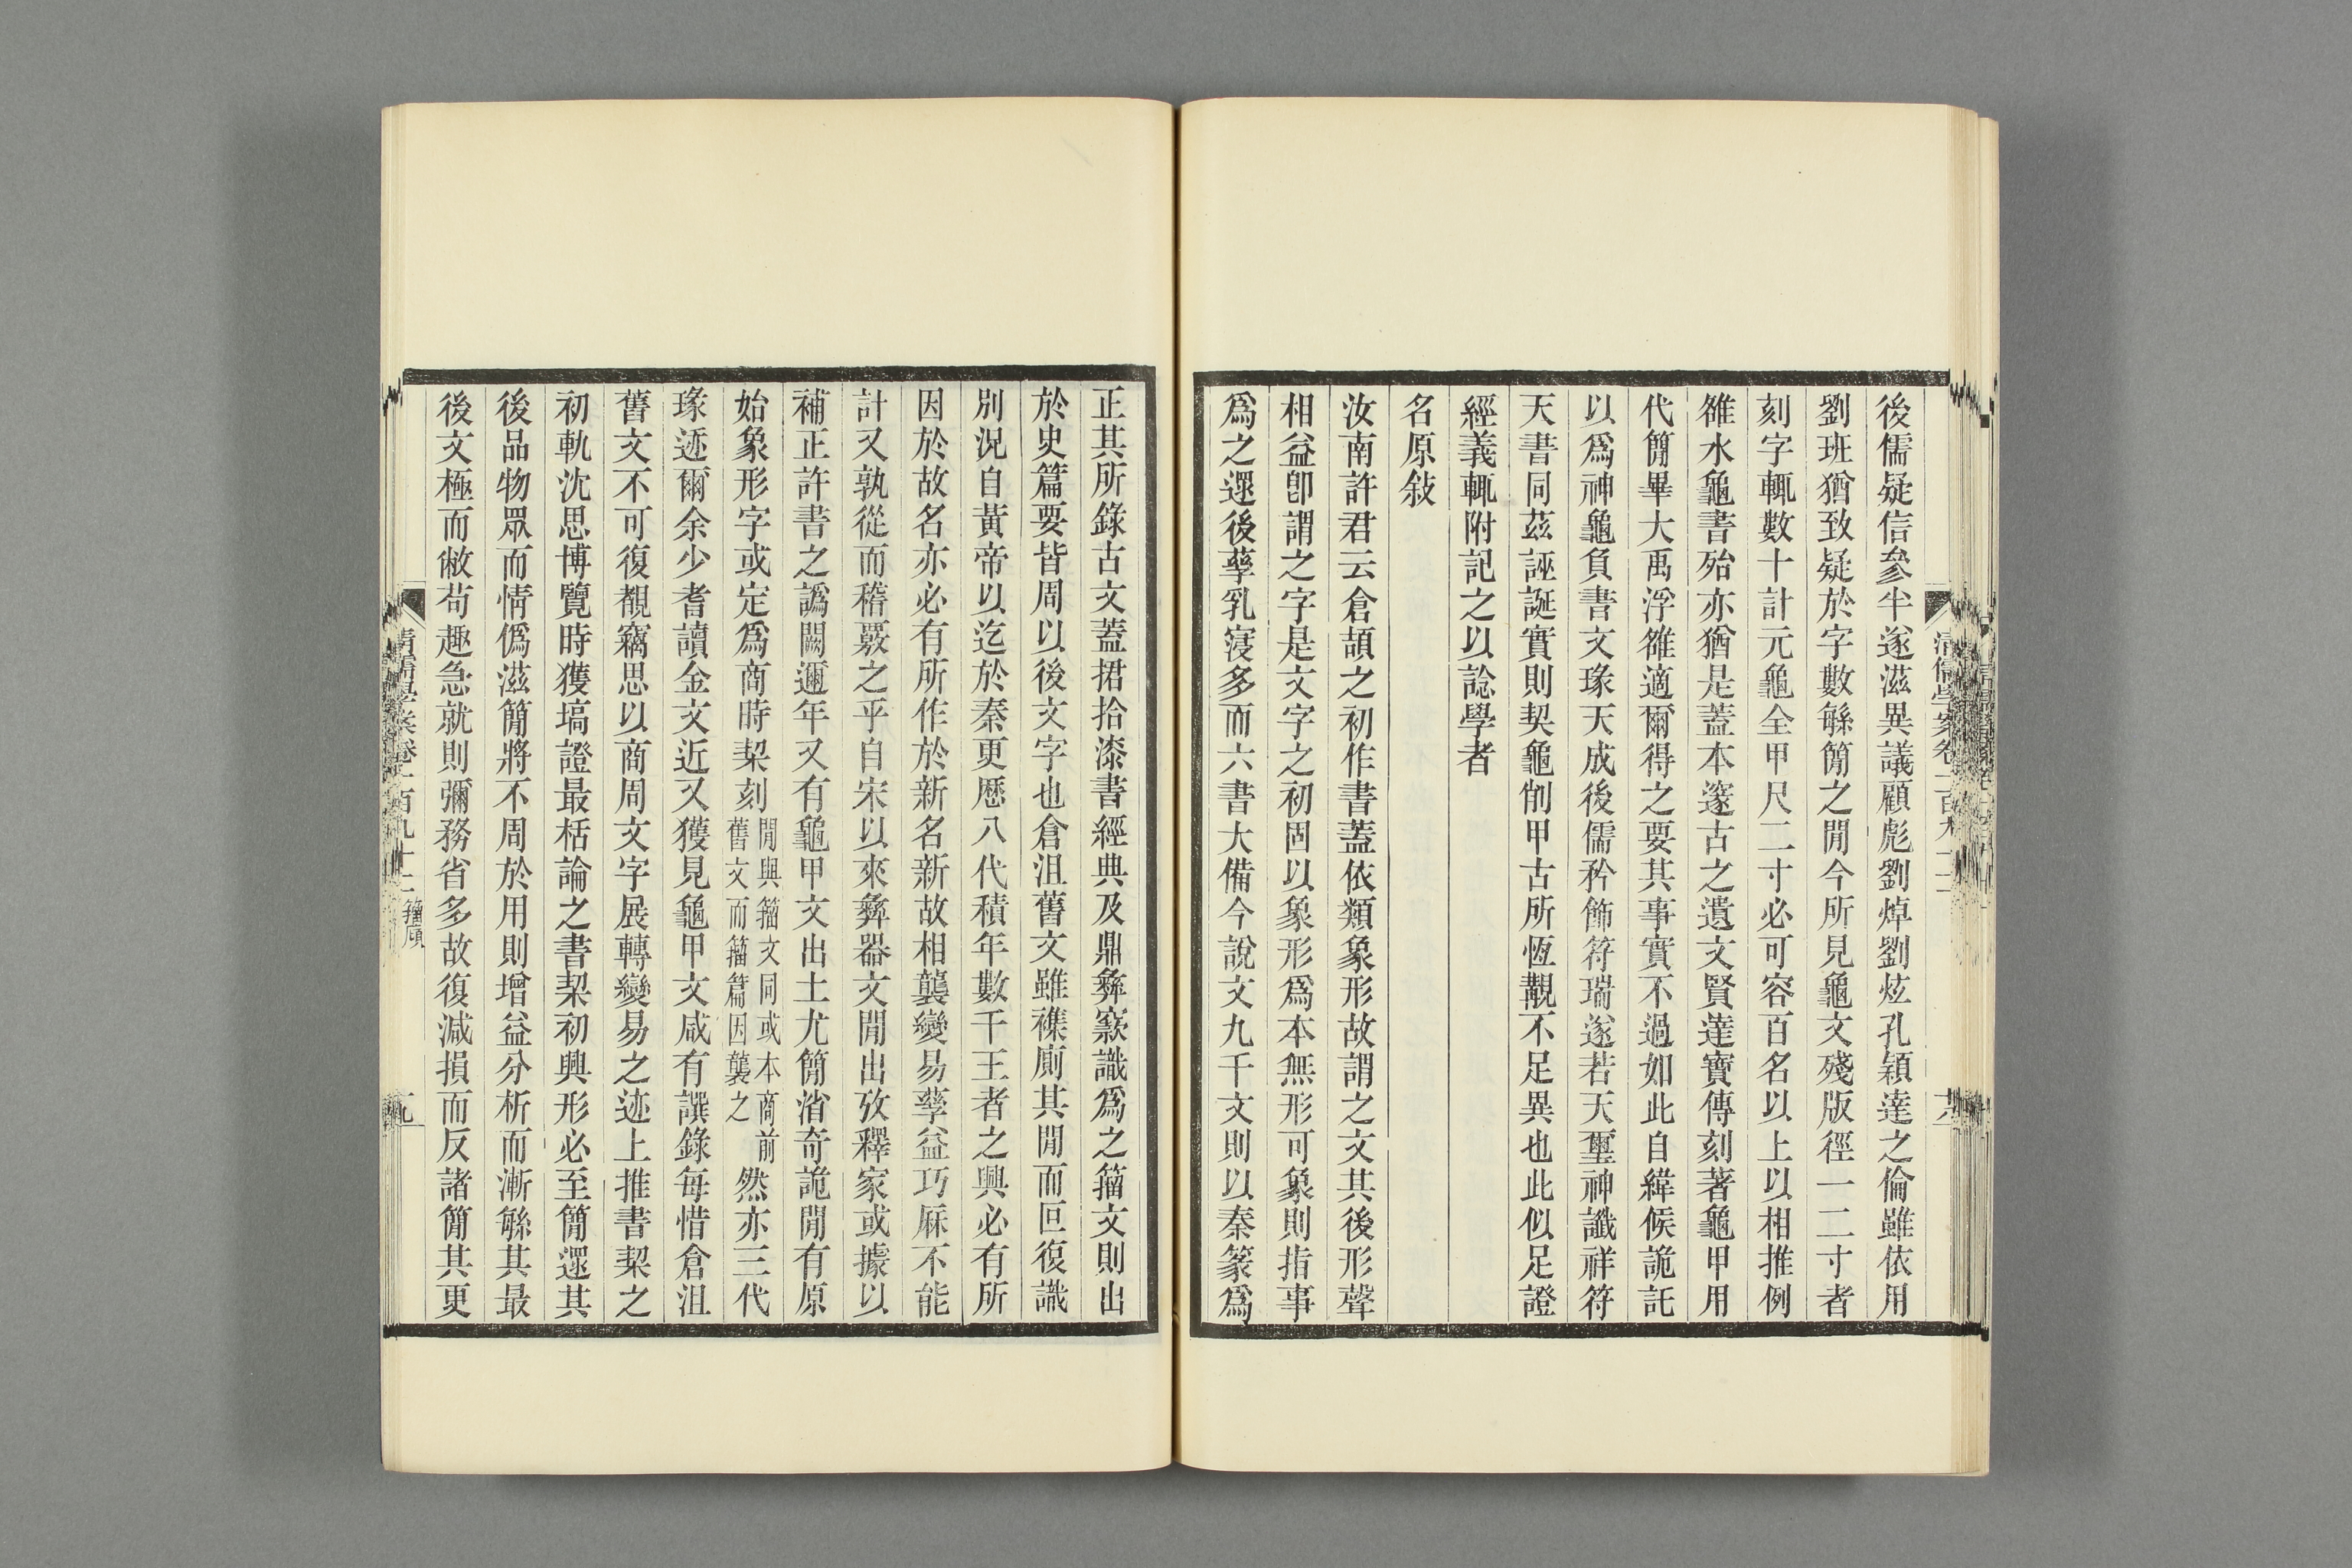 後儒疑信參半遂滋異議顧彪劉焯劉炫孔穎達之倫雖依用
劉班猶致疑於字數緐簡之閒今所見龜文殘版徑一二寸者
刻字輒數十計元龜全甲尺二寸必可容百名以上以相推例
雒水龜書殆亦猶是蓋本邃古之遺文賢達寶傳刻著龜甲用
代簡畢大禹浮雒適爾得之要其事實不過如此自緯候詭託
以爲神龜負書文瑑天成後儒矜飾符瑞遂若天璽神讖祥符
天書同茲誣誕實則契龜削甲古所恆覯不足異也此似足證
經義輒附記之以諗學者
名原敍
汝南許君云倉頡之初作書蓋依類象形故謂之文其後形聲
相益卽謂之字是文字之初固以象形爲本無形可象則指事
爲之還後孳乳寖多而六書大備今說文九千文則以秦篆爲
正其所錄古文蓋捃拾漆書經典及鼎彝窾識爲之籀文則出
於史篇要皆周以後文字也倉沮舊文雖襍廁其閒而叵復識
別況自黃帝以迄於秦更歷八代積年數千王者之興必有所
因於故名亦必有所作於新名新故相襲變易孳益巧厤不能
計又孰從而稽覈之乎自宋以來彝器文閒出攷釋家或據以
補正許書之譌闕邇年又有龜甲文出土尤簡渻奇詭閒有原
始象形字或定爲商時栔刻閒與籀文同或本商前舊文而籀篇因襲之然亦三代
瑑迹爾余少耆讀金文近又獲見龜甲文咸有譔錄每惜倉沮
舊文不可復覩竊思以商周文字展轉變易之迹上推書栔之
初軌沈思博覽時獲塙證最栝論之書栔初興形必至簡還其
後品物眾而情僞滋簡將不周於用則增益分析而漸緐其最
後文極而敝苟趣急就則彌務省多故復減損而反諸簡其更
清儒學案卷一百九十二 籀廎
九